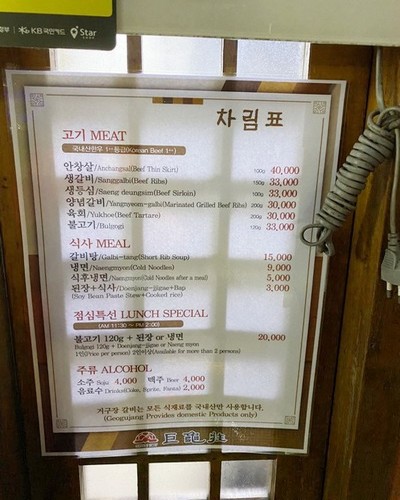 KB국민카드 Star
차림표
고기 MEAT
국내산한우 1++등급(Korean Beef 1++)
안창살/Anchangsal(Beef Thin Skirt) 100g 40,000
생갈비/Sanggalbi(Beef Ribs) 150g 33,000
생등심/Saeng deungsim(Beef Sirloin) 100g 33,000
양념갈비/Yangnyeom-galbi(Marinated Grilled Beef Ribs) 200g 30,000
육회/Yukhoe(Beef Tartare) 200g 30,000
불고기/Bulgogi 120g 33,000
식사 MEAL
갈비탕/Galbi-tang(Short Rib Soup) 15,000
냉면/Naengmyen(Cold Noodles) 9,000
식후냉면/Naengmyen(Cold Noodles after a meal) 5,000
된장+식사/Doenjang-jjigae+Bap 3,000
(Soy Bean Paste Stew+Cooked rice)
점심특선 LUNCH SPECIAL
(AM 11:30 ~ PM 2:00)
불고기 120g + 된장 or 냉면 20,000
Bulgogi 120g + Doenjang-jjigae or Naeng myen
1인(Price per person) 2인이상(Available for more than 2 persons)
주류 ALCOHOL
소주 Soju 4,000 맥주 Beer 4,000
음료수 Drinks(Coke, Sprite, Fanta) 2,000
거구장 갈비는 모든 식재료를 국내산만 사용합니다.
(Geogujang Provides domestic Products only)